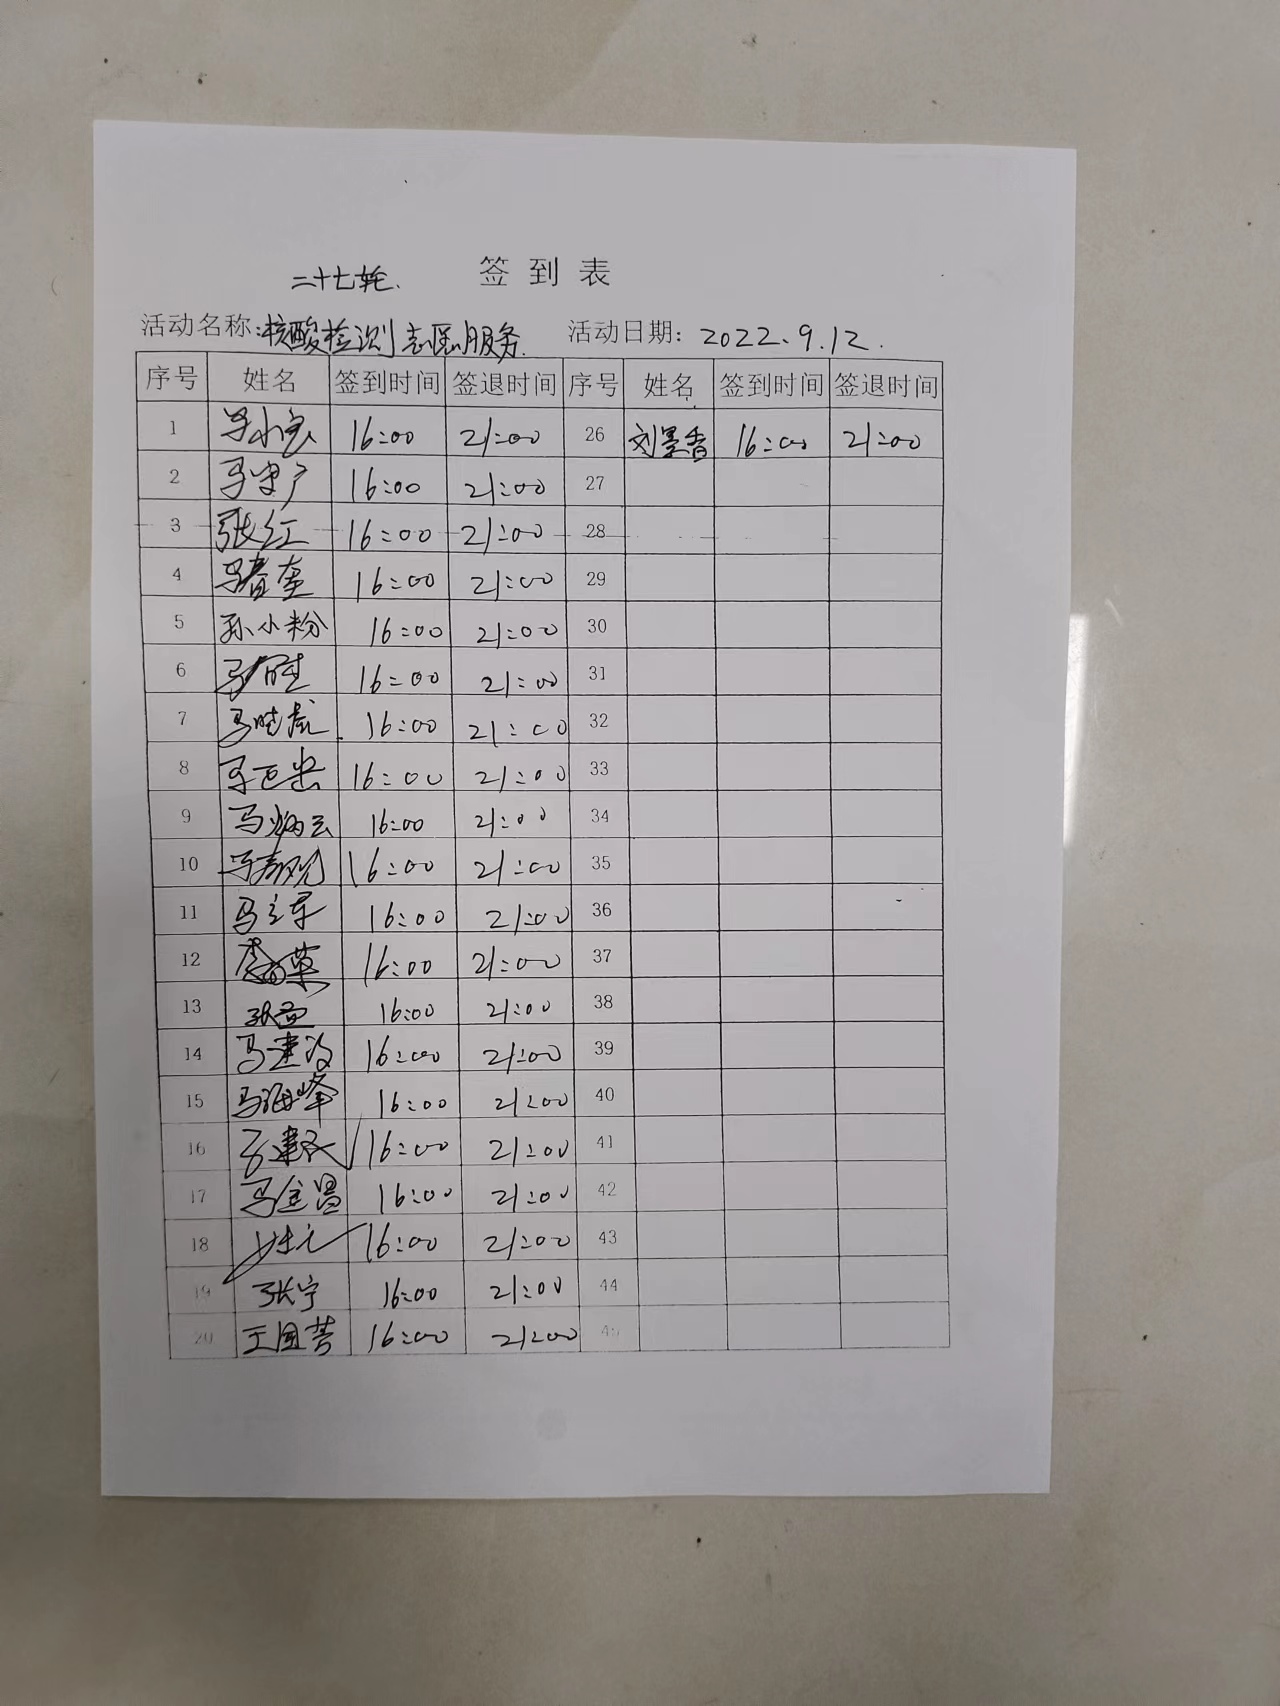 二十七轮. 签到表
活动名称:核酸检测志愿服务. 活动日期: 2022.9.12.
序号 姓名 签到时间 签退时间 序号 姓名 签到时间 签退时间
1 马小宝 16:00 21:00 26 刘墨香 16:00 21:00
2 16:00 21:00 27
3 张红 16:00 21:00 28
4 16:00 21:00 29
5 孙小粉 16:00 21:00 30
6 16:00 21:00 31
7 16:00 21:00 32
8 16:00 21:00 33
9 马炳云 16:00 21:00 34
10 16:00 21:00 35
11 马立军 16:00 21:00 36
12 16:00 21:00 37
13 16:00 21:00 38
14 16:00 21:00 39
15 马海峰 16:00 21:00 40
16 16:00 21:00 41
17 16:00 21:00 42
18 16:00 21:00 43
19 张宁 16:00 21:00 44
20 16:00 21:00 45